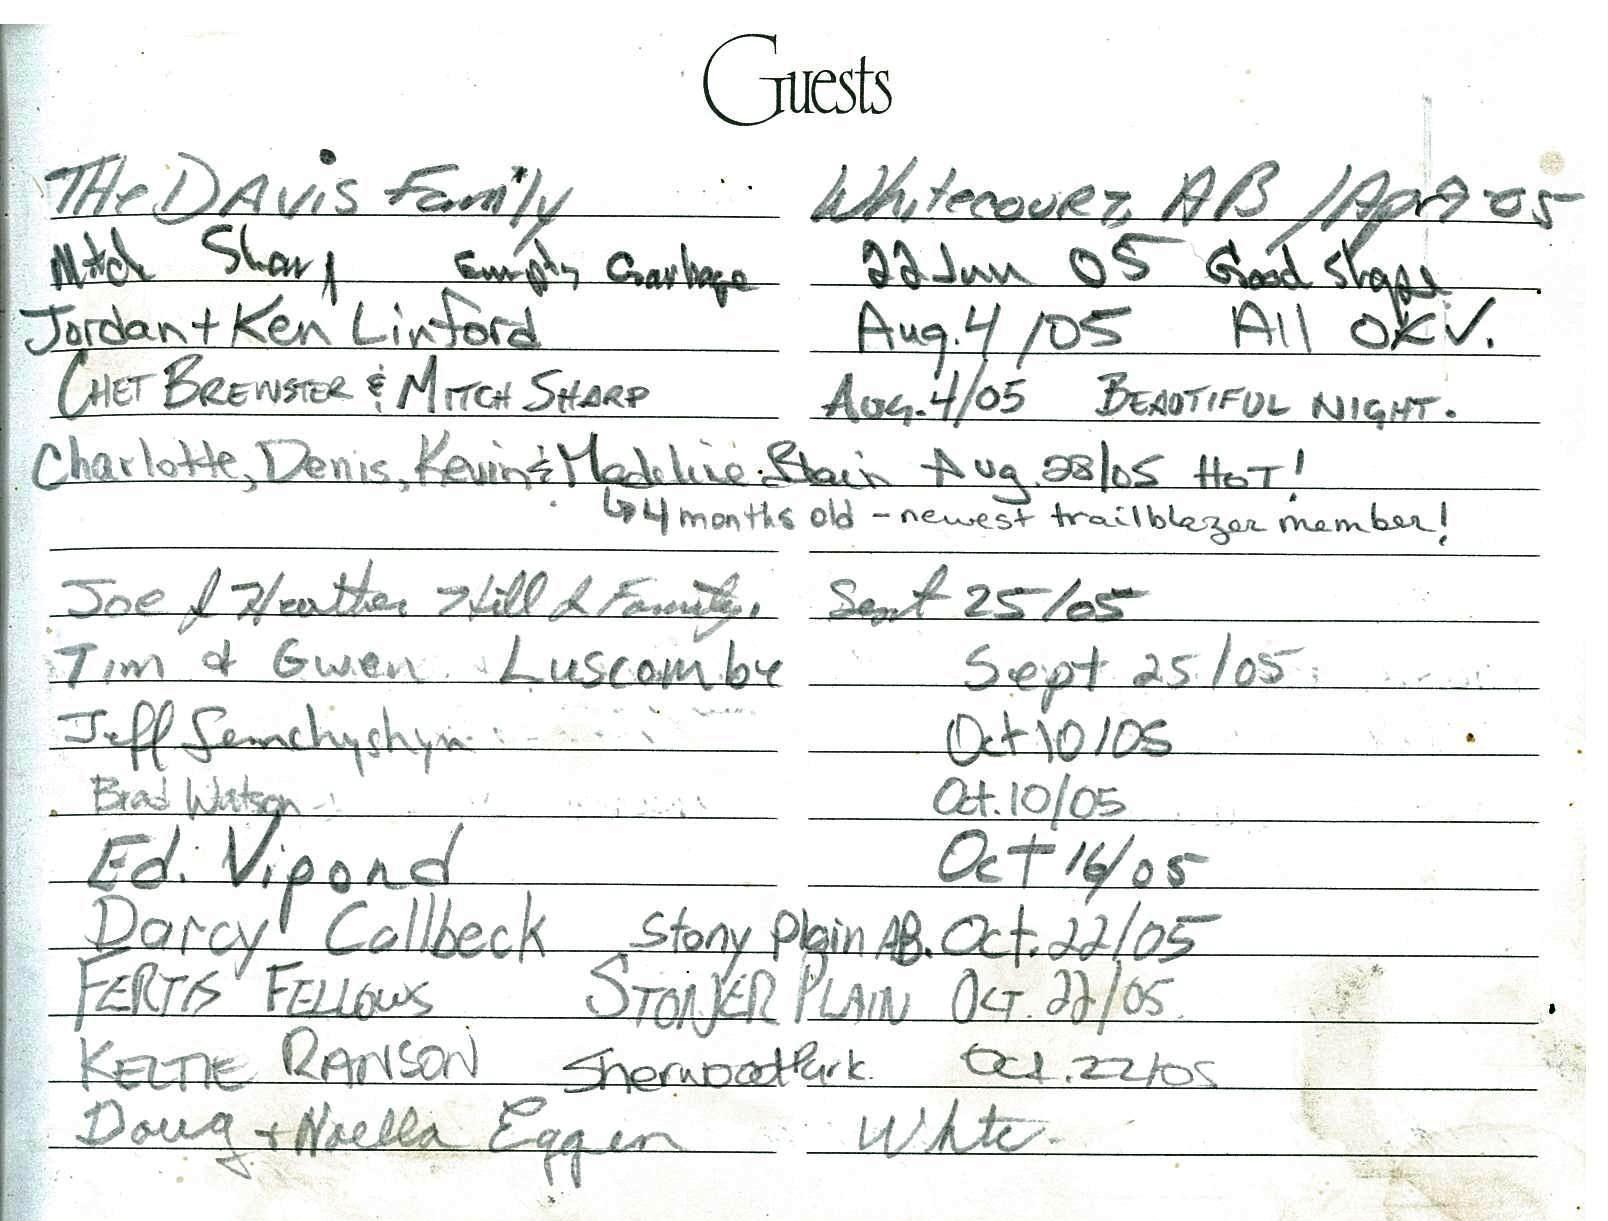 Guests
THe DAVis Family Whitecourt, AB / Apr 05
Mitch Sharp Empty Garbage 22 Jun 05 Good Shape
Jordan + Ken Linford Aug. 4 / 05 All OK ✓.
CHET BREWSTER & MITCH SHARP AUG. 4/05 BEAUTIFUL NIGHT.
Charlotte, Denis, Kevin & Madeline Blain Aug. 28/05 HOT!
↳ 4 months old - newest trailblazer member!
Joe & Heather Hill & Family. Sept 25/05
Tim & Gwen Luscombe Sept 25/05
Jeff Semchyshyn Oct 10/05
Brad Watson Oct. 10/05
Ed. Vipond Oct 16/05
Darcy Callbeck Stony Plain AB. Oct. 22/05
FERTIS FELLOWS STONER PLAIN OCT. 22/05.
KELTIE RANSON Sherwood Park. Oct. 22/05
Doug + Noella Eggen White.